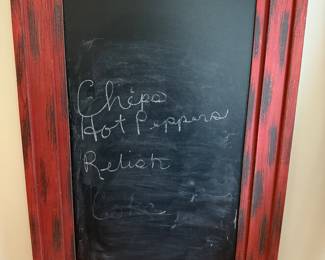 Chips
Hot Peppers
Relish
Coke